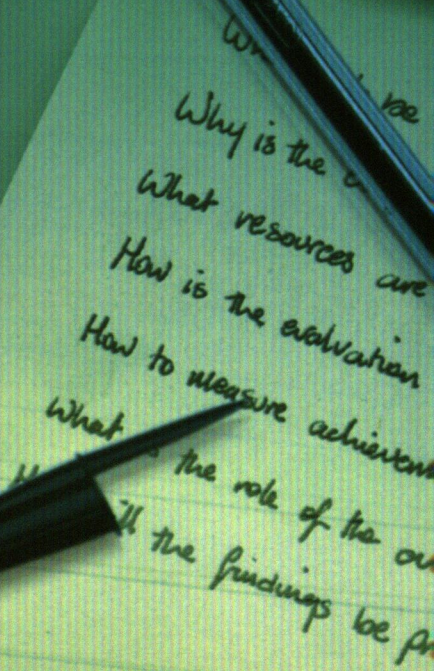 be
Why is the
What resources are
How is the evaluation
How to measure
What is the role of the
the findings be